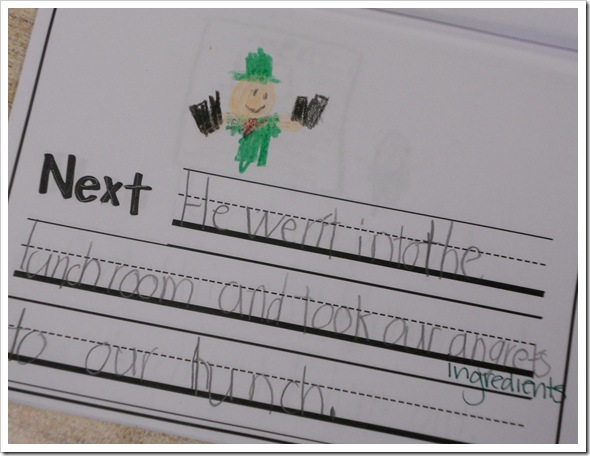 Next He went into the
lunchroom and took our angrets
ingredients
to our hunch.